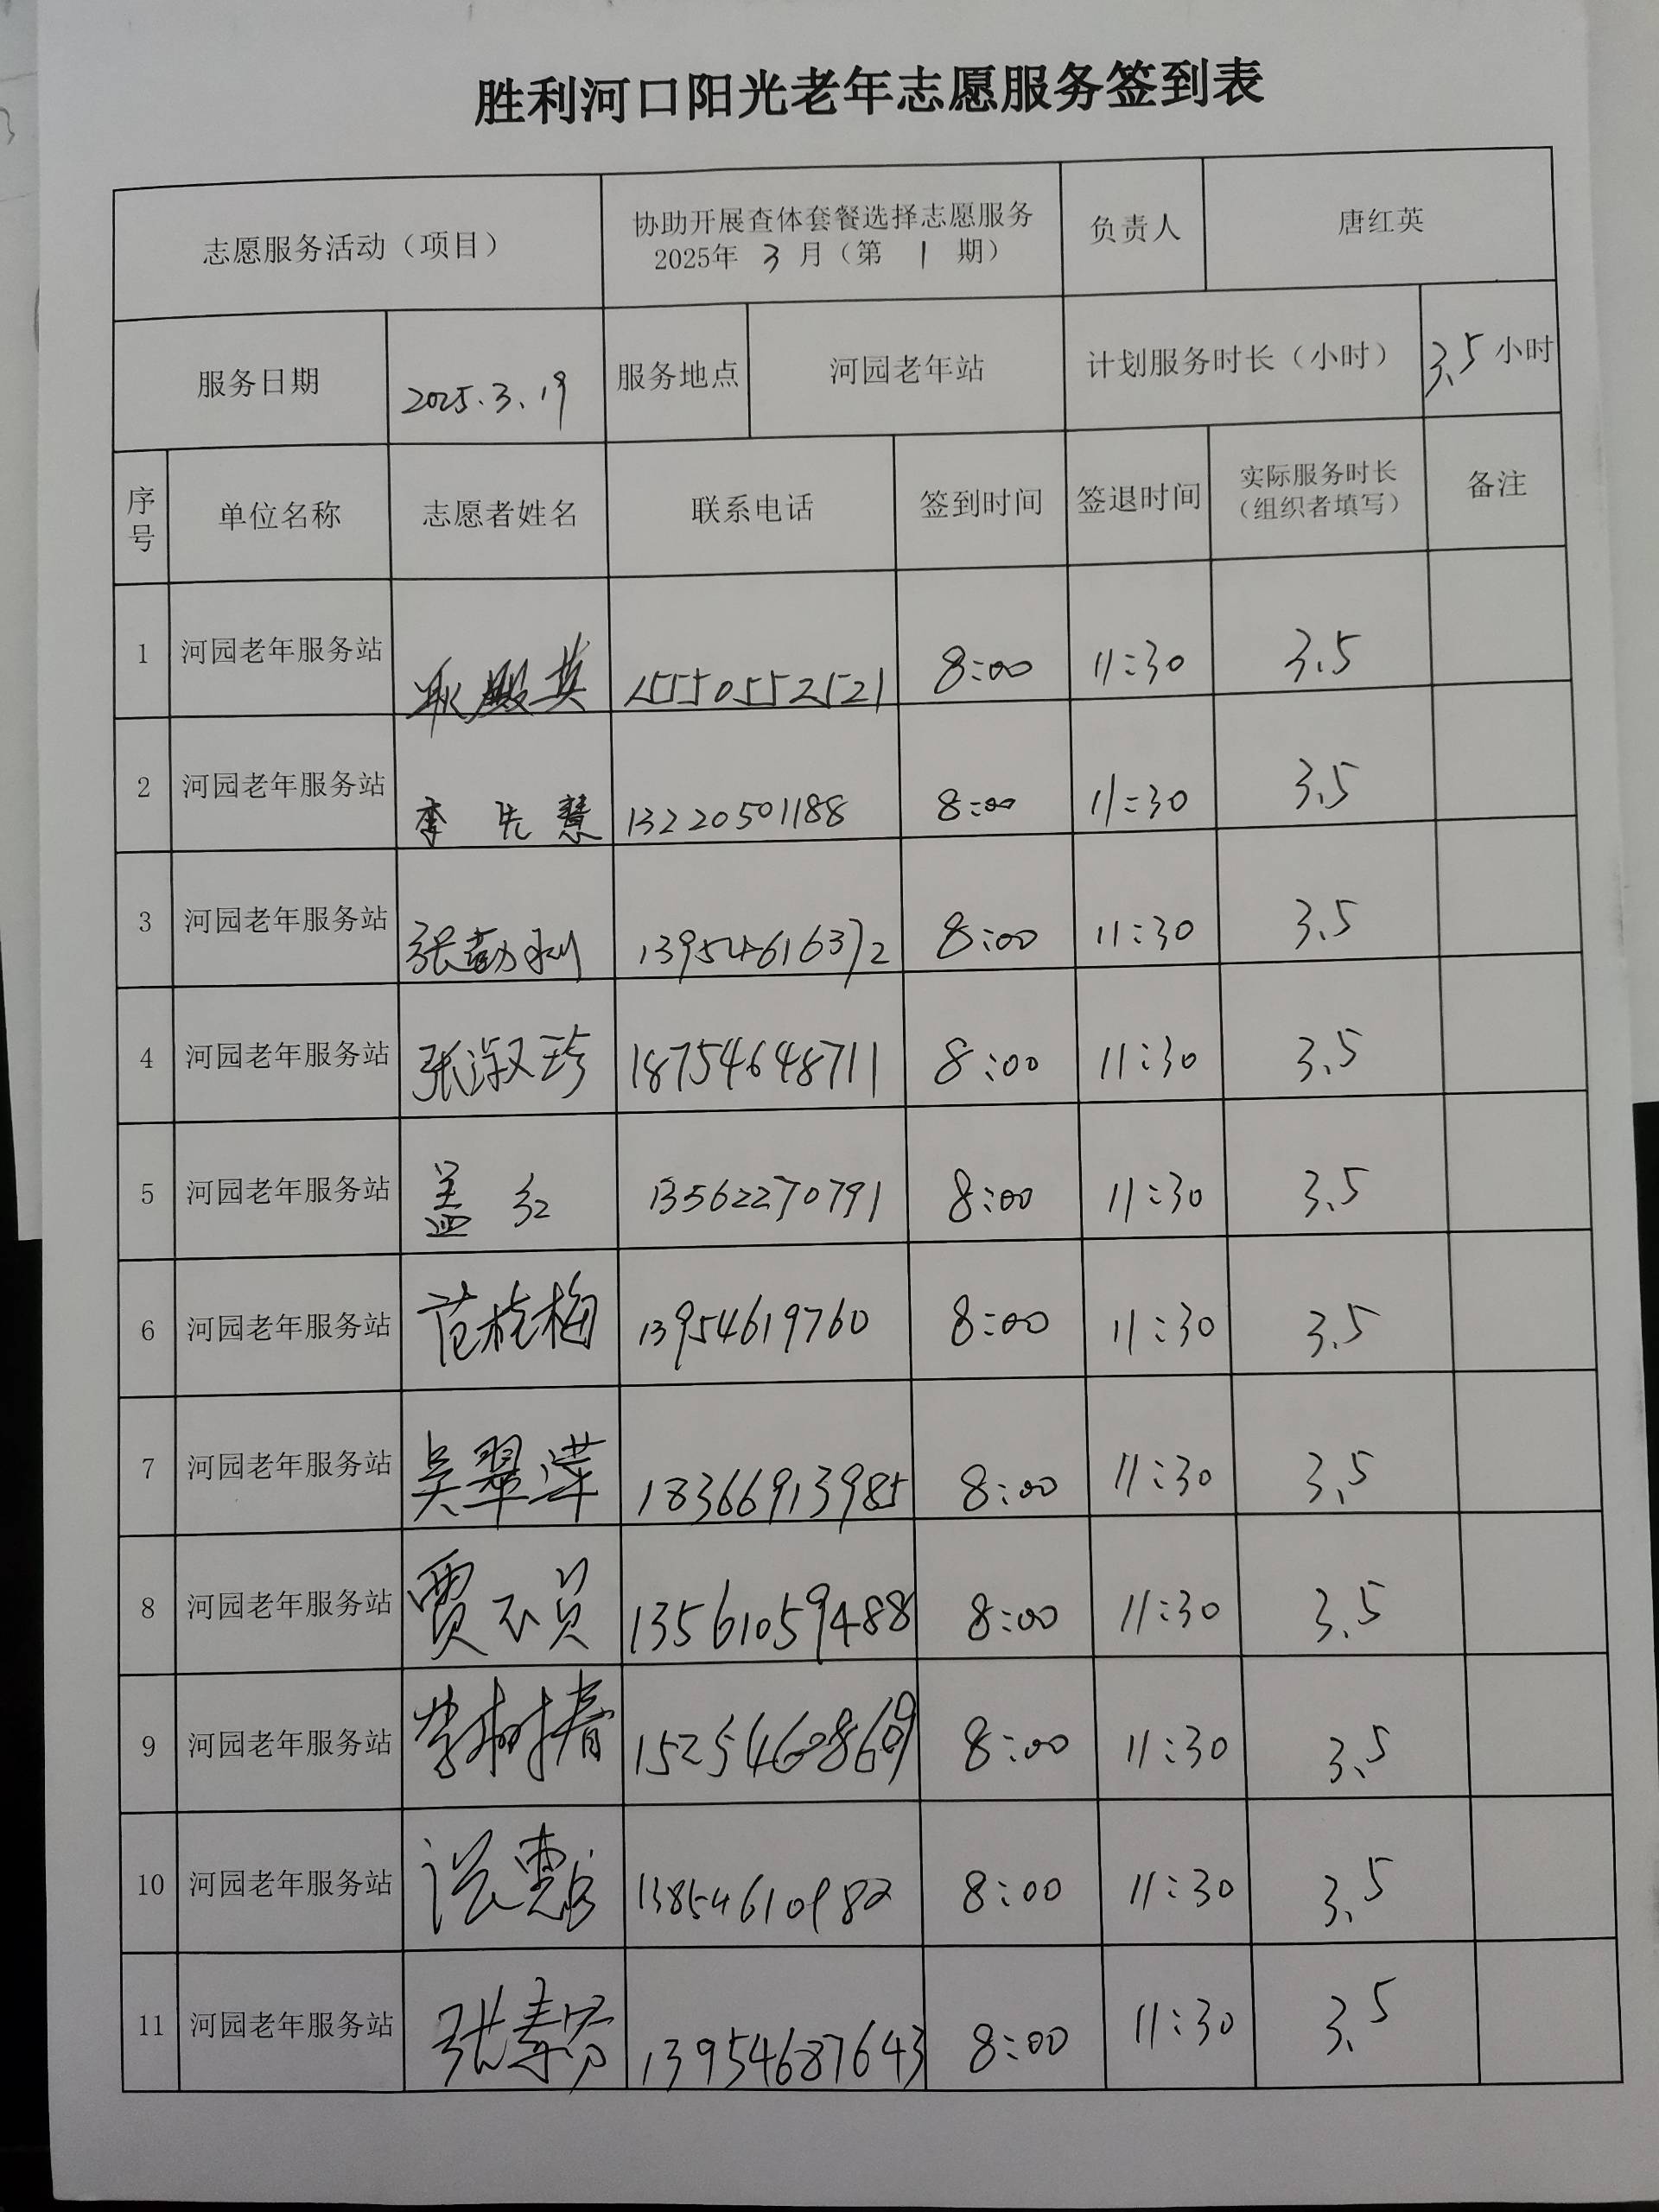 胜利河口阳光老年志愿服务签到表
志愿服务活动（项目） 协助开展查体套餐选择志愿服务 负责人 唐红英
2025年 3 月（第 1 期）
服务日期 2025.3.19 服务地点 河园老年站 计划服务时长（小时） 3.5 小时
序号 单位名称 志愿者姓名 联系电话 签到时间 签退时间 实际服务时长 备注
（组织者填写）
1 河园老年服务站 耿殿英 15550552521 8:00 11:30 3.5
2 河园老年服务站 李先慧 13220501188 8:00 11:30 3.5
3 河园老年服务站 张彭利 13954616372 8:00 11:30 3.5
4 河园老年服务站 张淑珍 18754648711 8:00 11:30 3.5
5 河园老年服务站 盖红 13562270791 8:00 11:30 3.5
6 河园老年服务站 范桂梅 13954619760 8:00 11:30 3.5
7 河园老年服务站 吴翠萍 18366913985 8:00 11:30 3.5
8 河园老年服务站 13561059488 8:00 11:30 3.5
9 河园老年服务站 李树春 8:00 11:30 3.5
10 河园老年服务站 13854610982 8:00 11:30 3.5
11 河园老年服务站 张素芬 13954687643 8:00 11:30 3.5